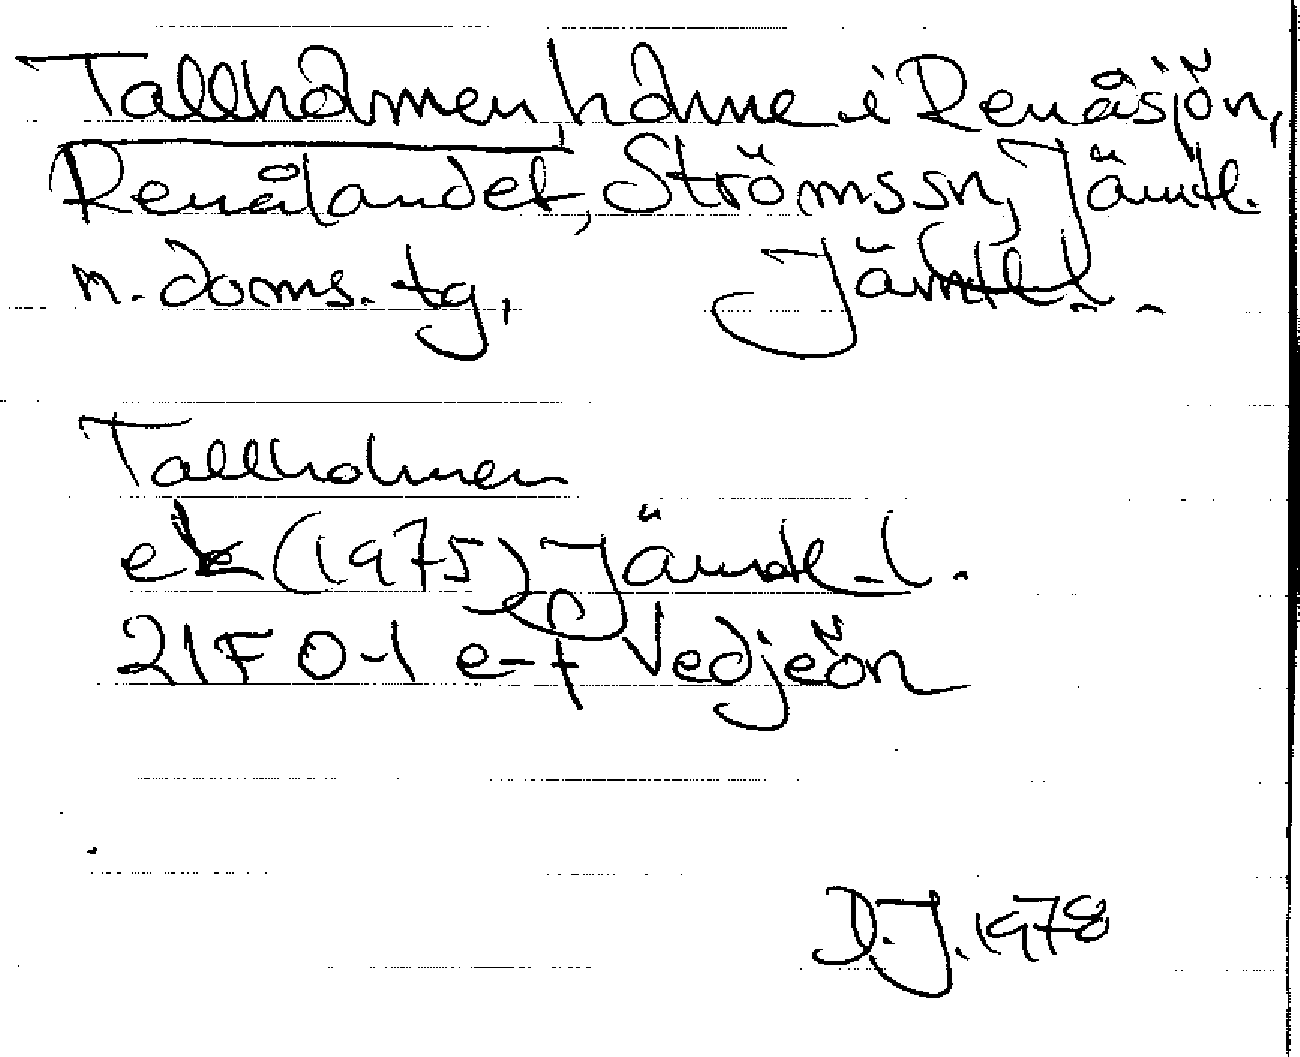 Tallholmen, holme i Renåsjön,
Renålandet, Ströms sn, Jämtl.
n. doms. tg, Jämtl.
Tallholmen
ek (1975) Jämtl. l.
21F 0-1 e-f Vedjeön
D.J. 1978